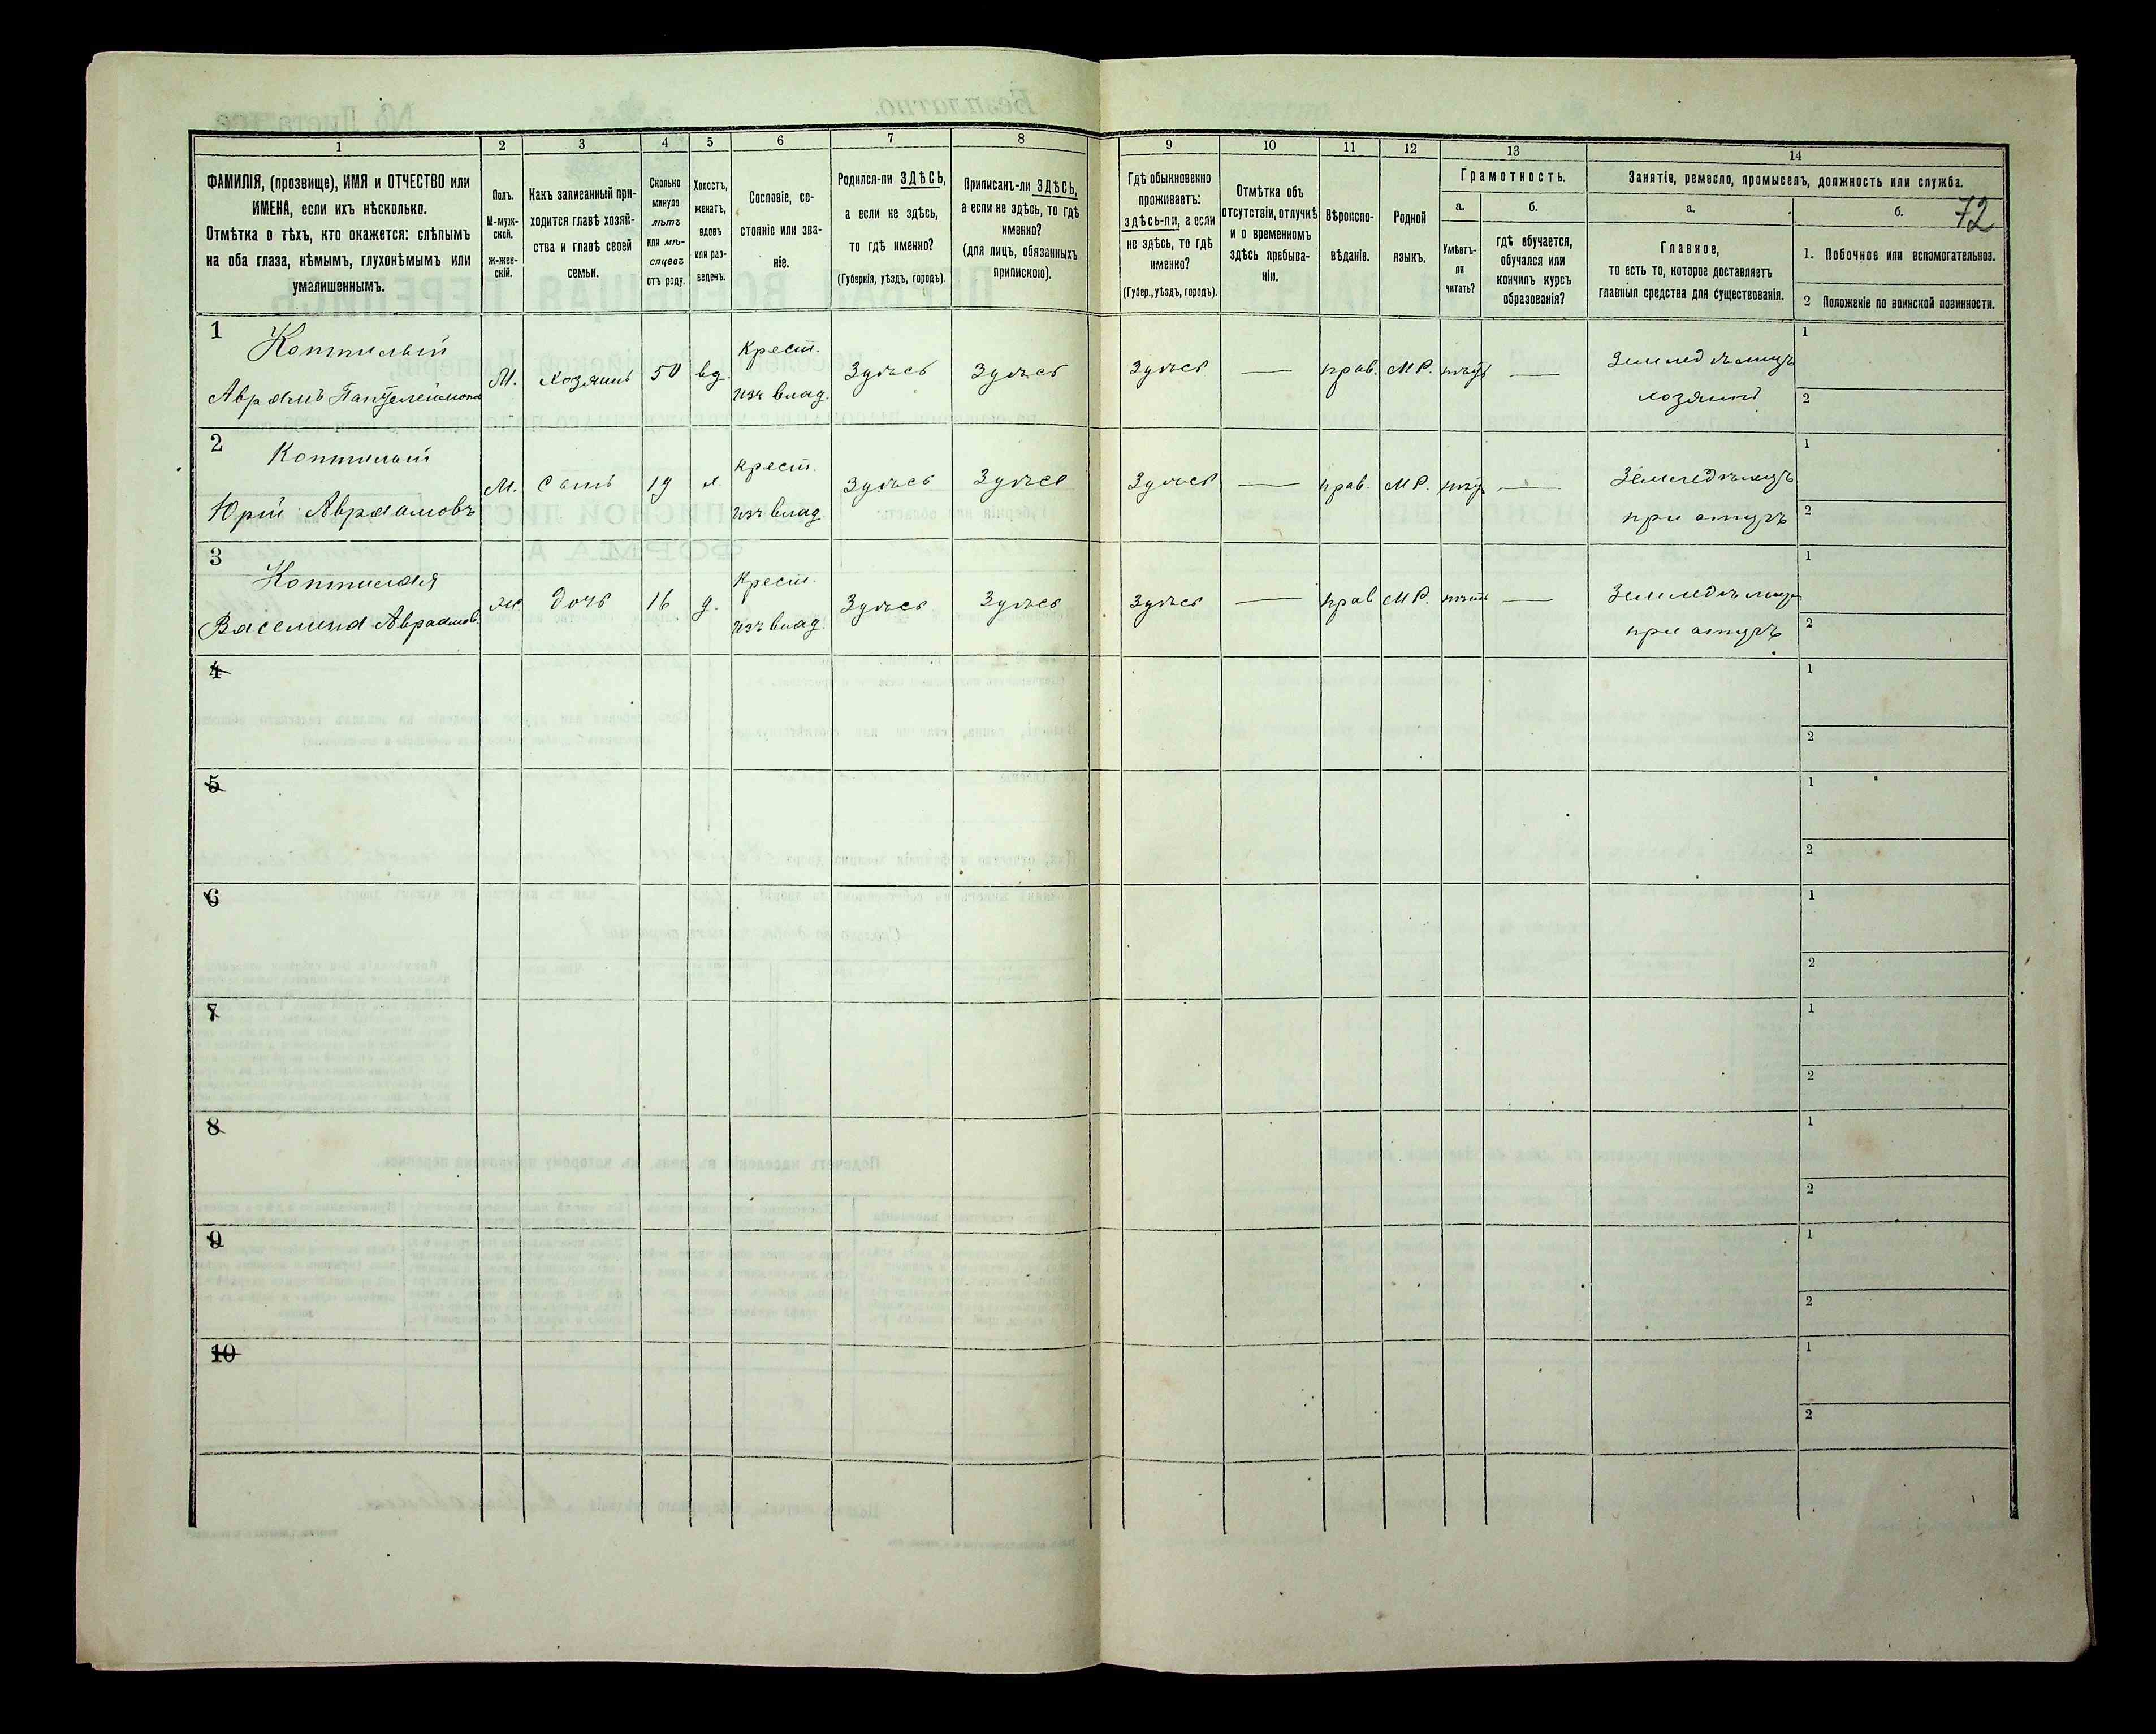 72
1 2 3 4 5 6 7 8 9 10 11 12 13 14
ФАМИЛІЯ, (прозвище), ИМЯ и ОТЧЕСТВО или
ИМЕНА, если ихъ нѣсколько.
Отмѣтка о тѣхъ, кто окажется: слѣпымъ
на оба глаза, нѣмымъ, глухонѣмымъ или
умалишеннымъ.
Полъ.
М-муж-
ской.
ж-жен-
скій.
Какъ записанный при-
ходится главѣ хозяй-
ства и главѣ своей
семьи.
Сколько
минуло
лѣтъ
или мѣ-
сяцевъ
отъ роду.
Холостъ,
женатъ,
вдовъ
или раз-
веденъ.
Сословіе, со-
стояніе или зва-
ніе.
Родился-ли ЗДѢСЬ,
а если не здѣсь,
то гдѣ именно?
(Губернія, уѣздъ, городъ).
Приписанъ-ли ЗДѢСЬ,
а если не здѣсь, то гдѣ
именно?
(для лицъ, обязанныхъ
припискою).
Гдѣ обыкновенно
проживаетъ:
здѣсь-ли, а если
не здѣсь, то гдѣ
именно?
(Губер., уѣздъ, городъ).
Отмѣтка объ
отсутствіи, отлучкѣ
и о временномъ
здѣсь пребыва-
ніи.
Вѣроиспо-
вѣданіе.
Родной
языкъ.
Грамотность.
а.
Умѣетъ-
ли
читать?
б.
гдѣ обучается,
обучался или
кончилъ курсъ
образованія?
Занятія, ремесло, промыселъ, должность или служба.
а.
Главное,
то есть то, которое доставляетъ
главныя средства для существованія.
б.
1. Побочное или вспомогательное.
2 Положеніе по воинской повинности.
1
Авраамъ Пантелеймоно
М. хозяинъ 50 вд.
Крест.
изъ влад.
Здѣсь Здѣсь Здѣсь — прав. М.Р. нѣтъ —
Земледѣлецъ
хозяинъ
1
2
2
Юрій Авраамовъ
М. Сынъ 19 х.
Крест.
изъ влад.
Здѣсь Здѣсь Здѣсь — прав. М.Р. нѣтъ —
Земледѣлецъ
при отцѣ
1
2
3
Авраамов.
ж дочь 16 д.
Крест.
изъ влад.
Здѣсь Здѣсь Здѣсь — прав М.Р. нѣтъ —
при отцѣ
1
2
4
1
2
5
1
2
6
1
2
7
1
2
8
1
2
9
1
2
10
1
2